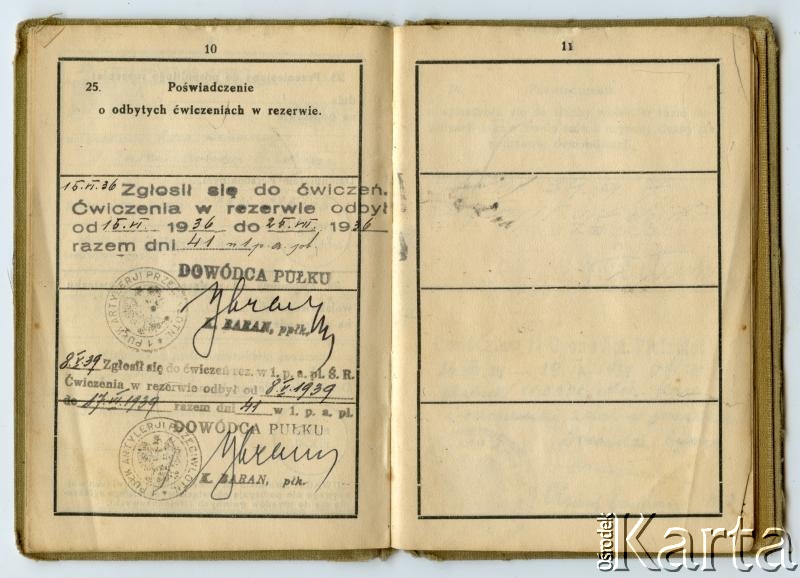 10
25. Poświadczenie
o odbytych ćwiczeniach w rezerwie.
15.VI.36 Zgłosił się do ćwiczeń.
Ćwiczenia w rezerwie odbył
od 15.VI. 1936 do 25.VII. 1936
razem dni 41 w 1 p. a. pl.
DOWÓDCA PUŁKU
K. BARAN, ppłk.
1 PUŁK ARTYLERJI PRZECIWLOTN.
8.V.39 Zgłosił się do ćwiczeń rez. w 1. p. a. pl. Ś. R.
Ćwiczenia w rezerwie odbył od 8.V.1939
do 17.VI.1939 razem dni 41 w 1. p. a. pl.
DOWÓDCA PUŁKU
K. BARAN, płk.
1 PUŁK ARTYLERJI PRZECIWLOTN.
11
ośrodek Karta